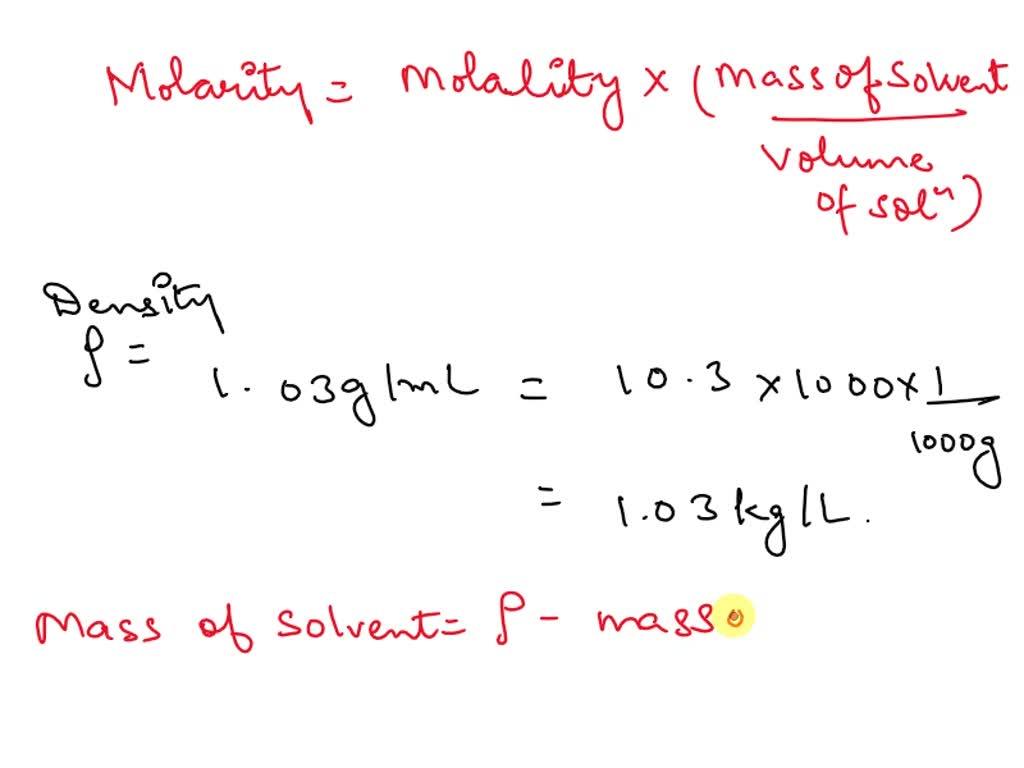 Molarity = Molality × (mass of solvent
volume
of solⁿ)
Density
ρ =
1.03g/mL = 10.3 × 1000 × 1
1000g
= 1.03 kg/L.
Mass of solvent = ρ - mass o